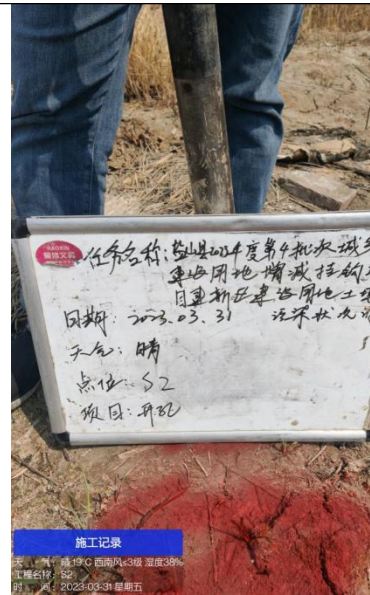 HAOXIN
任务名称：盐山县2023年度第4批次城乡
建设用地增减挂钩项
目建新区建设用地土壤
日期：2023.03.31 污染状况调
天气：晴
点位：S2
项目：开孔
施工记录
天 气：晴 19℃ 西南风≤3级 湿度38%
工程名称：S2
时 间：2023-03-31 星期五